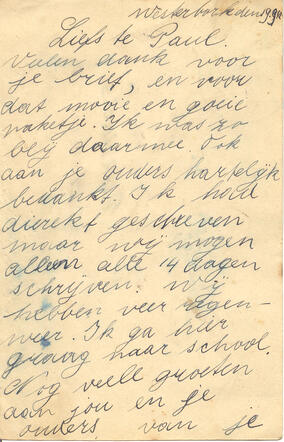 Westerbork den 19.9
Liefste Paul.
Veelen dank voor
je brief, en voor
dat mooie en goeie
paketje. Ik was zo
blij daarmee. Ook
aan je ouders hartelijk
bedankt. Ik had
dierekt geschreven
maar wij mogen
alleen alle 14 dagen
schrijven. Wij
hebben veer regen-
weer. Ik ga hier
graag naar school.
Nog veele groeten
aan jou en je
ouders van je